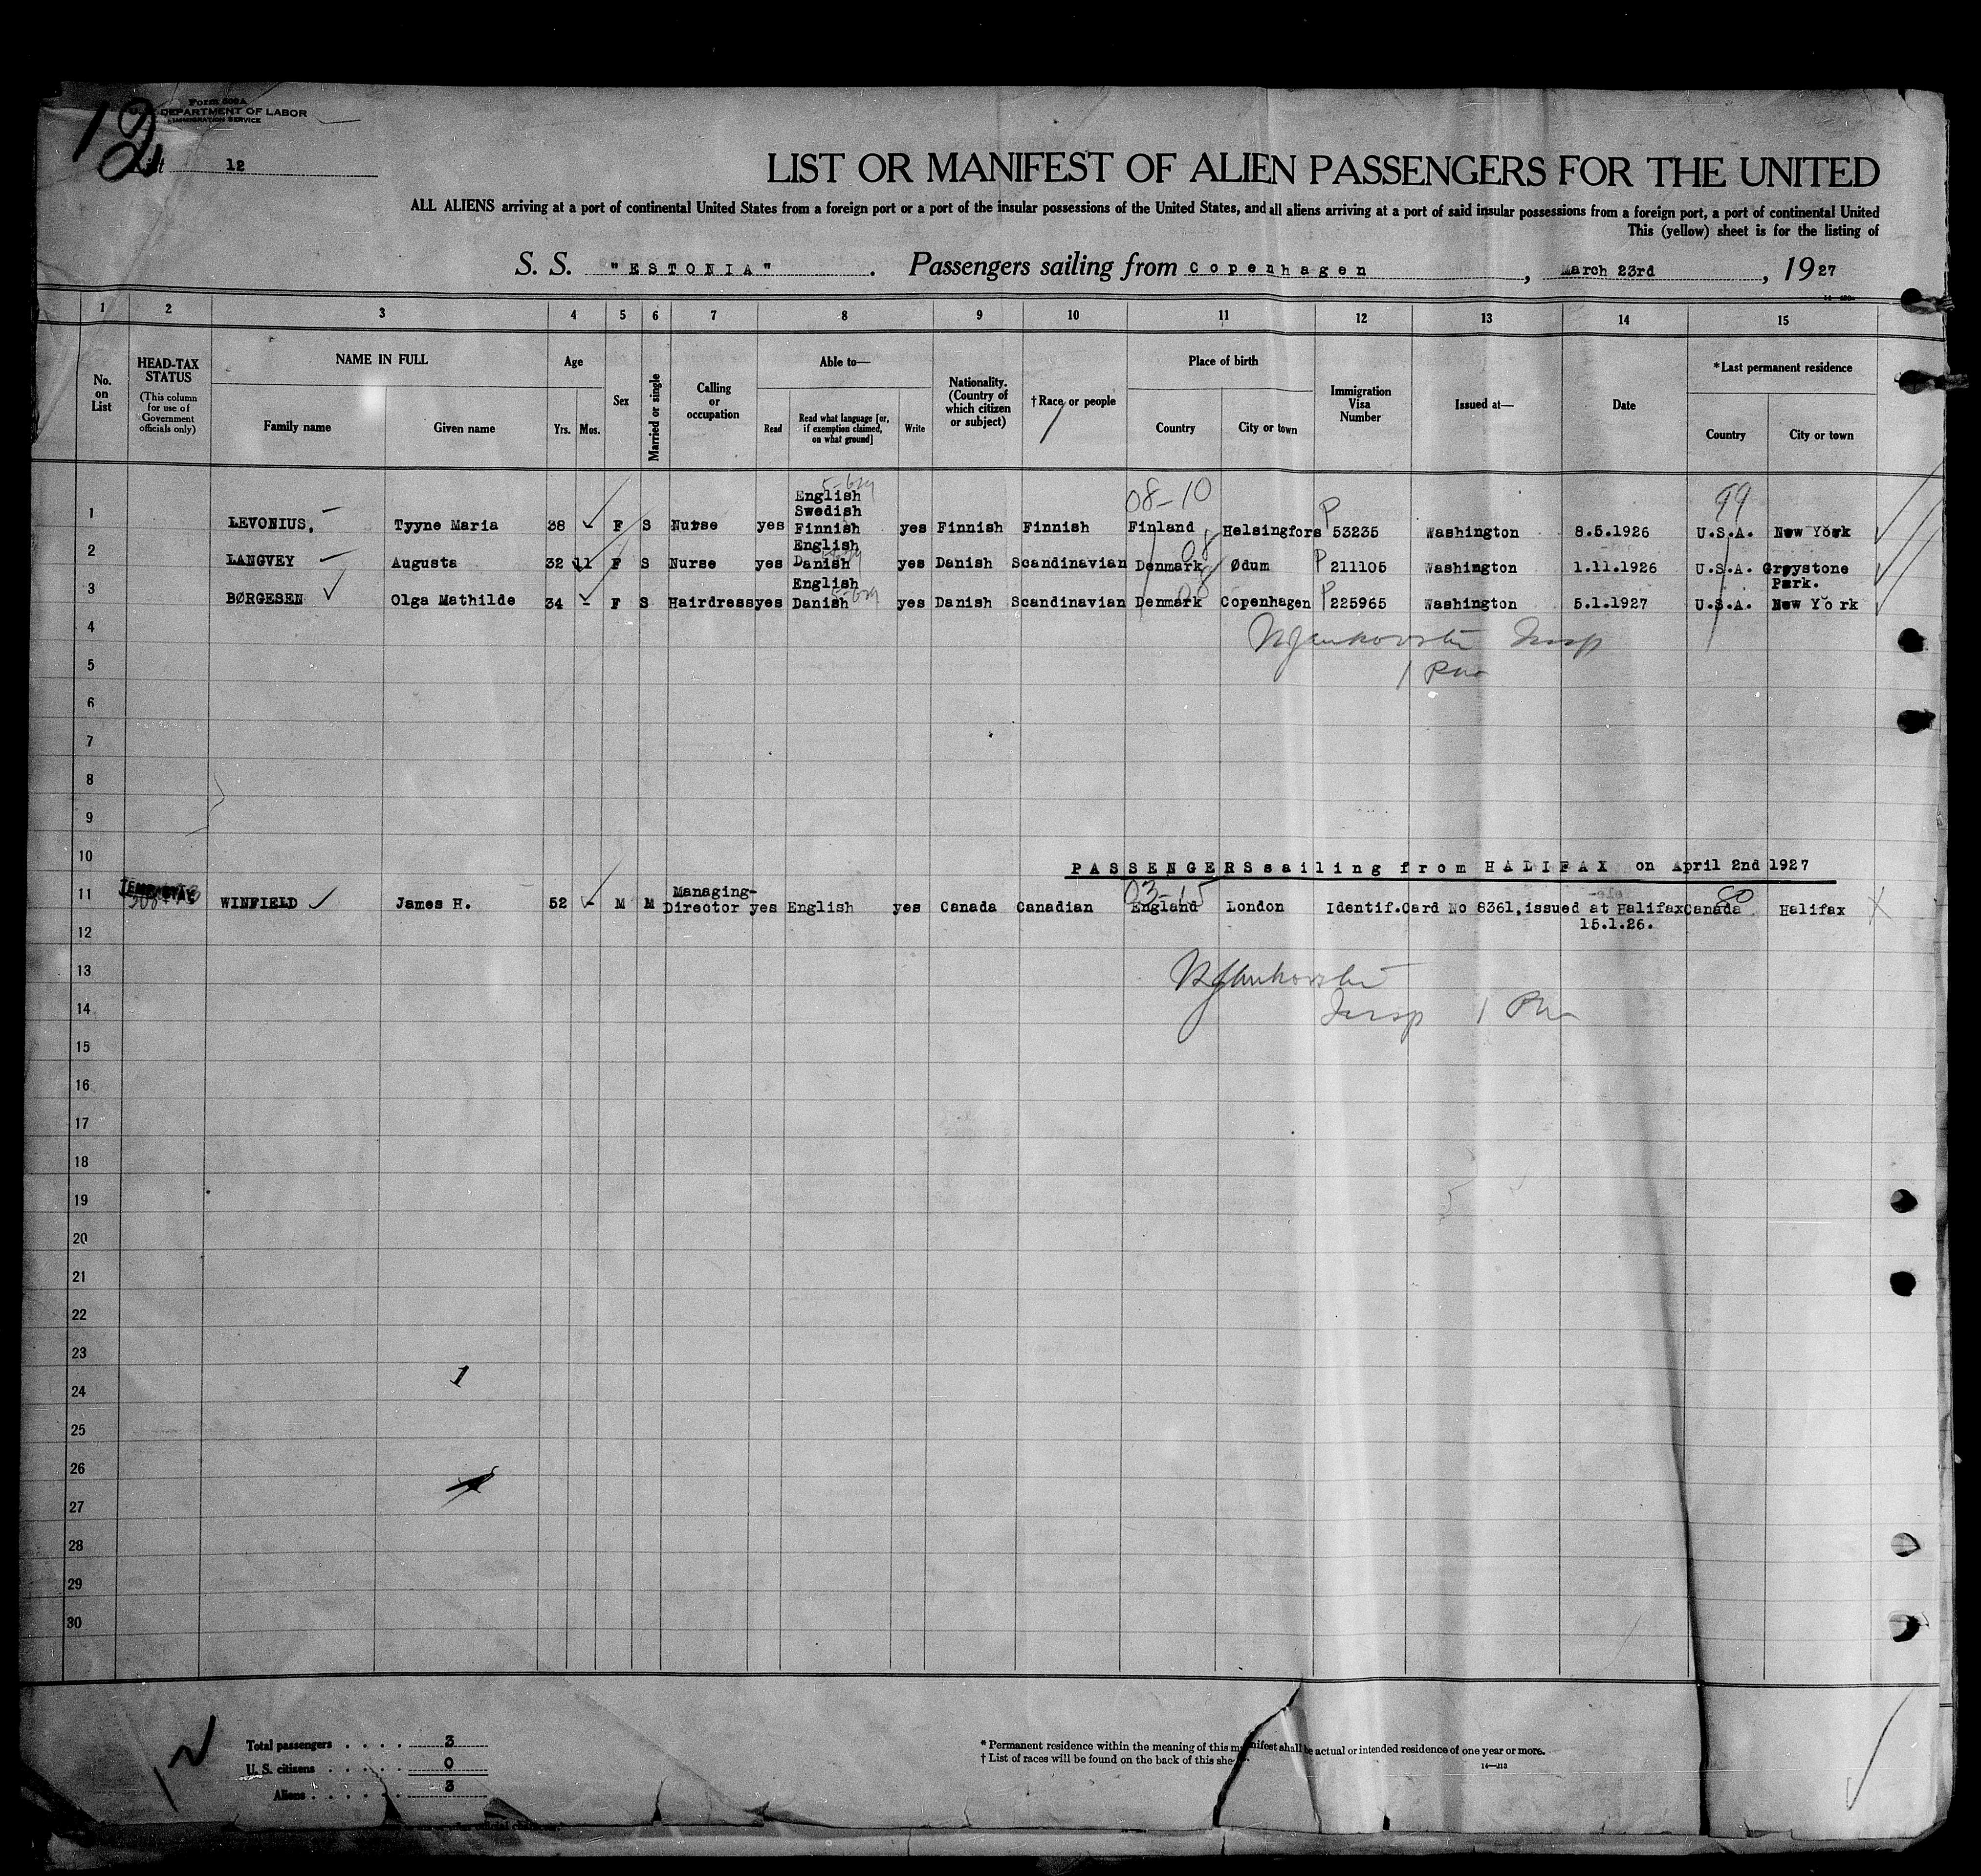 Form 500A
DEPARTMENT OF LABOR
IMMIGRATION SERVICE
12
List 12
LIST OR MANIFEST OF ALIEN PASSENGERS FOR THE UNITED
ALL ALIENS arriving at a port of continental United States from a foreign port or a port of the insular possessions of the United States, and all aliens arriving at a port of said insular possessions from a foreign port, a port of continental United
This (yellow) sheet is for the listing of
S. S. "ESTONIA". Passengers sailing from Copenhagen, March 23rd, 1927
1 2 3 4 5 6 7 8 9 10 11 12 13 14 15
No. on List
HEAD-TAX STATUS
(This column for use of Government officials only)
NAME IN FULL
Family name Given name
Age
Yrs. Mos.
Sex
Married or single
Calling or occupation
Able to—
Read
Read what language [or, if exemption claimed, on what ground]
Write
Nationality. (Country of which citizen or subject)
†Race or people
Place of birth
Country City or town
Immigration Visa Number
Issued at—
Date
*Last permanent residence
Country City or town
08-10 99
English
Swedish
1 LEVONIUS, Tyyne Maria 38 - F S Nurse yes Finnish yes Finnish Finnish Finland Helsingfors P 53235 Washington 8.5.1926 U.S.A. New York
English 08
2 LANGVEY Augusta 32 11 F S Nurse yes Danish yes Danish Scandinavian Denmark Ødum P 211105 Washington 1.11.1926 U.S.A. Greystone
English 08 Park.
3 BØRGESEN Olga Mathilde 34 - F S Hairdress yes Danish yes Danish Scandinavian Denmark Copenhagen P 225965 Washington 5.1.1927 U.S.A. New York
4
Insp
5
6
7
8
9
10 PASSENGERS sailing from HALIFAX on April 2nd 1927
Managing- 03-15 80
11 WINFIELD James H. 52 - M M Director yes English yes Canada Canadian England London Identif.Card No 8361, issued at Halifax Canada Halifax
12 15.1.26.
13
14 Insp
15
16
17
18
19
20
21
22
23
24 1
25
26
27
28
29
30
Total passengers . . . . 3
U. S. citizens . . . . . 0
Aliens . . . . . . 3
* Permanent residence within the meaning of this manifest shall be actual or intended residence of one year or more.
† List of races will be found on the back of this sheet.